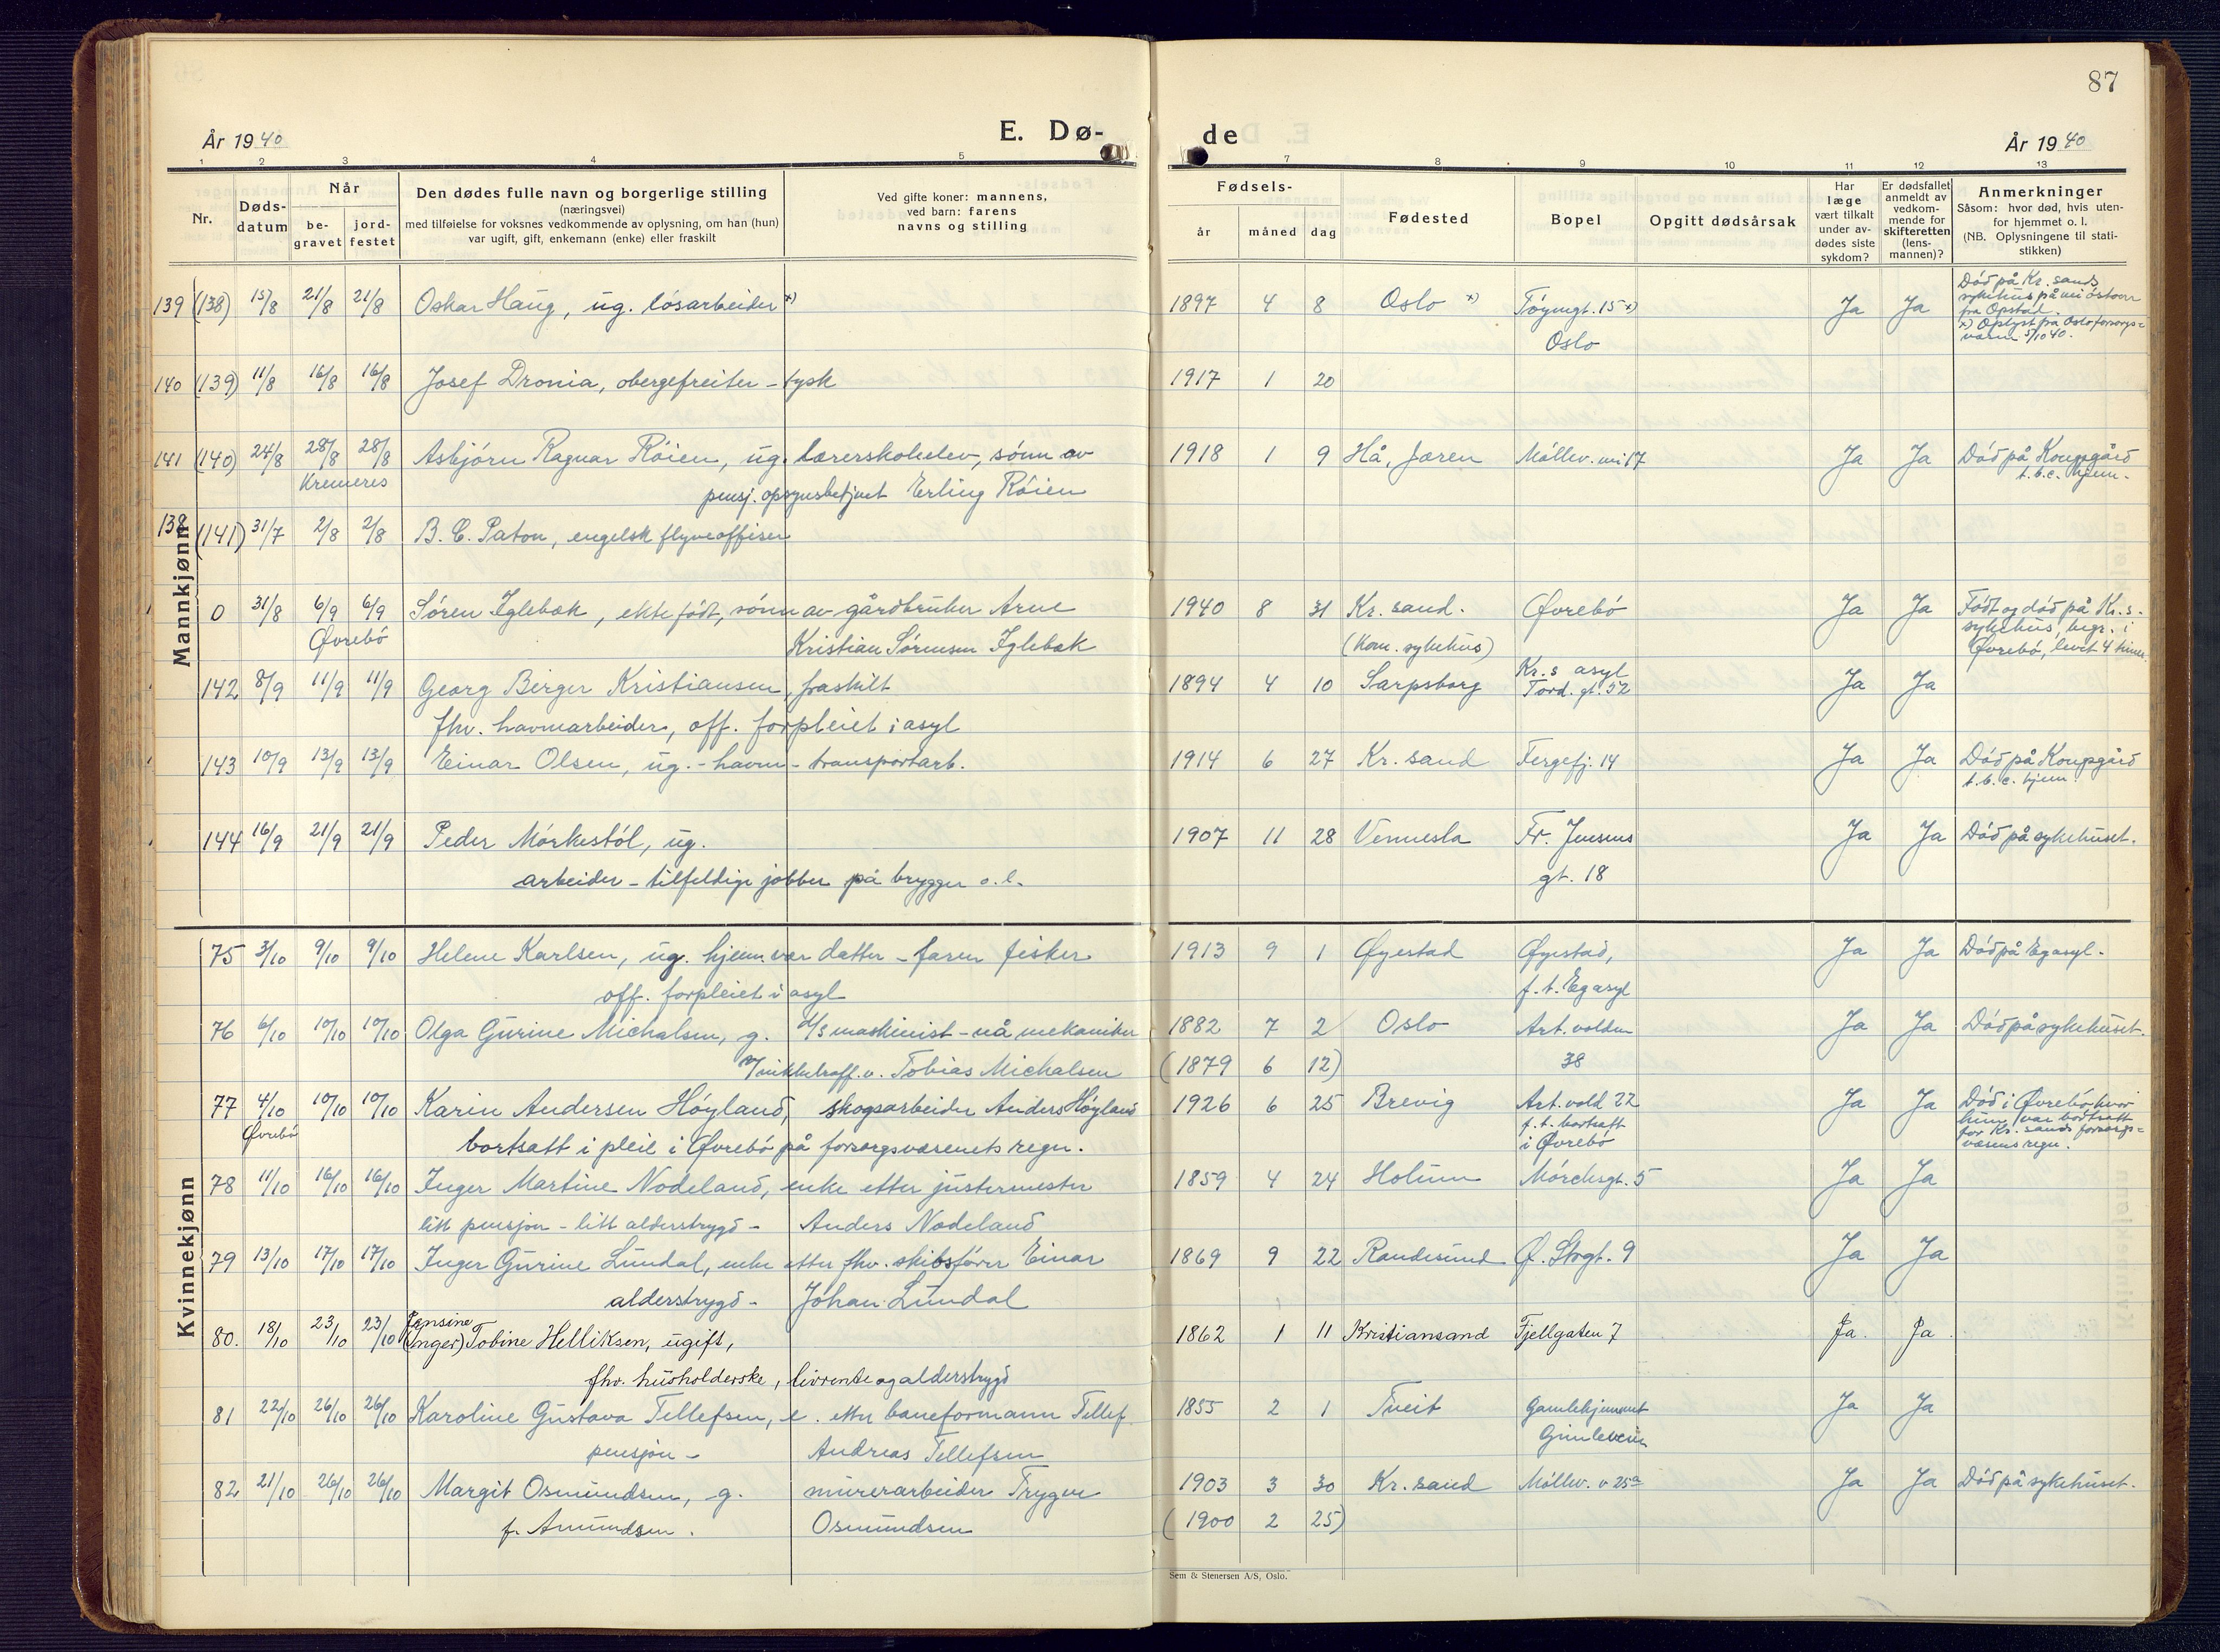 87
År 1940
E. Dø-
de
År 1940
1 2 3 4 5 7 8 9 10 11 12 13
Nr.
Døds-
datum
Når
be-
gravet
jord-
festet
Den dødes fulle navn og borgerlige stilling
(næringsvei)
med tilføielse for voksnes vedkommende av oplysning, om han (hun)
var ugift, gift, enkemann (enke) eller fraskilt
Ved gifte koner: mannens,
ved barn: farens
navns og stilling
Fødsels-
år måned dag
Fødested
Bopel
Opgitt dødsårsak
Har
læge
vært tilkalt
under av-
dødes siste
sykdom?
Er dødsfallet
anmeldt av
vedkom-
mende for
skifteretten
(lens-
mannen)?
Anmerkninger
Såsom: hvor død, hvis uten-
for hjemmet o. l.
(NB. Oplysningene til stati-
stikken)
Mannkjønn
139 (138) 15/8 21/8 21/8 Oskar Haug, ug. løsarbeider x) 1897 4 8 Oslo x) Tøyengt. 15 x) Ja Ja Død på Kr. sands
Oslo
sykehus på
fra Opstad.
x) Oplyst fra Oslo forsorgs=
vesen 5/10 40.
140 (139) 11/8 16/8 16/8 Josef Dronia, obergefreiter - tysk 1917 1 20
141 (140) 24/8 28/8 28/8 Asbjørn Ragnar Røien, ug. lærerskoleelev, sønn av 1918 1 9 Hå, Jæren Møllev. 17 Ja Ja Død på Kongsgård
Kremeres pensj. opsynsbetjent Erling Røien t.b.c. hjem.
138 (141) 31/7 2/8 2/8 B. C. Paton, engelsk flyveoffiser
0 31/8 6/9 6/9 Søren Iglebæk, ekte født, sønn av gårdbruker Arne 1940 8 31 Kr. sand. Øvrebø Ja Ja Født og død på Kr. s.
Øvrebø Kristian Sørensen Iglebæk (kom. sykehus) sykehus, begr. i
Øvrebø, levet 4 timer.
142 8/9 11/9 11/9 Georg Birger Kristiansen, fraskilt 1894 4 10 Sarpsborg Kr.s asyl Ja Ja
fhv. havnearbeider, off. forpleiet i asyl Tord. gt. 52
143 10/9 13/9 13/9 Einar Olsen, ug. - havn - transportarb. 1914 6 27 Kr. sand Fergefj. 14 Ja Ja Død på Kongsgård
t.b.c. hjem.
144 16/9 21/9 21/9 Peder Mørkestøl, ug. 1907 11 28 Vennesla Fr. Jensens Ja Ja Død på sykehuset.
arbeider - tilfeldige jobber på brygger o.l. gt. 18
Kvinnekjønn
75 3/10 9/10 9/10 Helene Karlsen, ug. hjemmevær. datter - faren fisker 1913 9 1 Øyestad Øyestad, Ja Ja Død på Eg asyl.
off. forpleiet i asyl f.t. Eg asyl
76 6/10 10/10 10/10 Olga Gurine Michalsen, g. d/s maskinist - nå mekaniker 1882 7 2 Oslo Art. volden Ja Ja Død på sykehuset.
v/nikkelraff. v. Tobias Michalsen (1879 6 12) 38
77 4/10 10/10 10/10 Karin Andersen Høyland, skogsarbeider Anders Høyland 1926 6 25 Brevig Art. vold 22 Ja Ja Død i Øvrebø hvor
Øvrebø bortsatt i pleie i Øvrebø på forsorgsvæsenets regn. f.t. bortsatt hun var bortsatt
i Øvrebø for Kr. sands forsorgs=
væsens regn.
78 11/10 16/10 16/10 Inger Martine Nodeland, enke etter justermester 1859 4 24 Holum Mørchsgt. 5 Ja Ja
litt pensjon - litt alderstrygd - Anders Nodeland
79 13/10 17/10 17/10 Inger Gurine Lundal, enke etter fhv. skibsfører Einar 1869 9 22 Randesund Ø. Strgt. 9 Ja Ja
alderstrygd - Johan Lundal
80. 18/10 23/10 23/10 Jensine
(Inger) Tobine Helliksen, ugift, 1862 1 11 Kristiansand Fjellgaten 7 Ja. Ja.
fhv. husholderske, livrente og alderstrygd
81 22/10 26/10 26/10 Karoline Gustava Tellefsen, e. etter baneformann Tellef 1855 2 1 Tveit Gamlehjemmet Ja Ja
pensjon - Andreas Tellefsen Gimleveien
82 21/10 26/10 26/10 Margit Osmundsen, g. murerarbeider Trygve 1903 3 30 Kr. sand Møllev. v 25a Ja Ja Død på sykehuset.
f. Amundsen. Osmundsen (1900 2 25)
Sem & Stenersen A/S, Oslo.